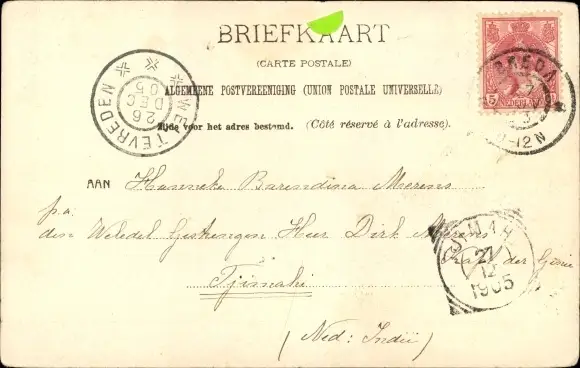 BRIEFKAART
(CARTE POSTALE)
ALGEMEENE POSTVEREENIGING (UNION POSTALE UNIVERSELLE)
Zijde voor het adres bestemd. (Côté réservé à l'adresse).
WELTEVREDEN
26
DEC
05
BREDA
5
NEDERLAND
12N
AAN Hanneke Barendina Merens
p.a.
den Weledel Gestrengen Heer Dirk Merens
der Genie
Tjimahi
(Ned: Indië)
27
12
1905